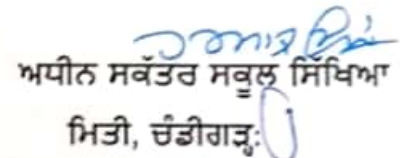 ਅਧੀਨ ਸਕੱਤਰ ਸਕੂਲ ਸਿੱਖਿਆ
ਮਿਤੀ, ਚੰਡੀਗੜ੍ਹ: